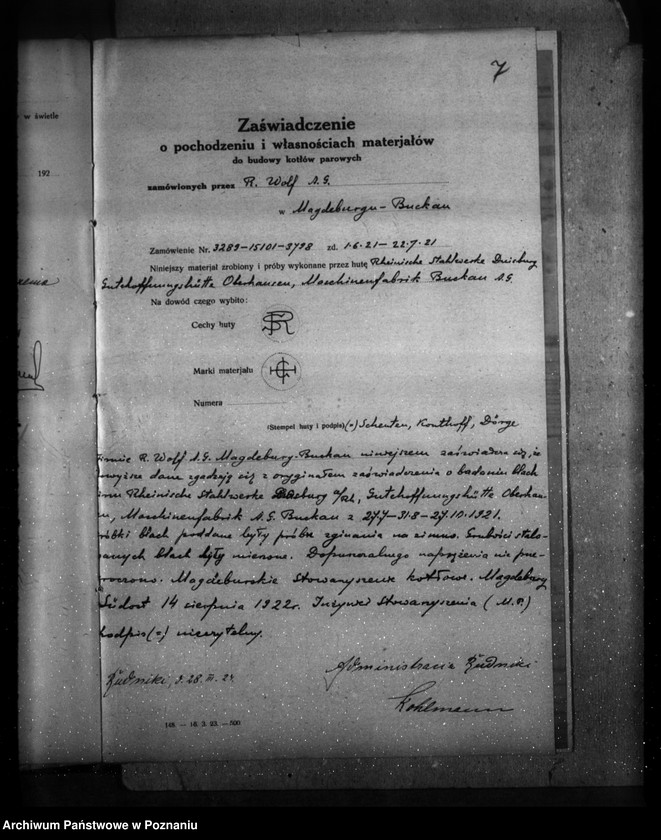 7
w świetle
192
Zaświadczenie
o pochodzeniu i własnościach materjałów
do budowy kotłów parowych
zamówionych przez R. Wolf A.G.
w Magdeburgu-Buckau
Zamówienie Nr. 3289-15101-3798 zd. 1.6.21-22.7.21
Niniejszy materjał zrobiony i próby wykonane przez hutę Rheinische Stahlwerke Duisburg
Gutehoffnungshütte Oberhausen, Maschinenfabrik Buckau A.G.
Na dowód czego wybito:
Cechy huty
Marki materjału
Numera
(Stempel huty i podpis) (-) Scheuten, Konthoff, Dörge
firmie R. Wolf A.G. Magdeburg-Buckau niniejszem zaświadcza się, że
powyższe dane zgadzają się z oryginałem zaświadczenia o badaniu blach
firm Rheinische Stahlwerke Duisburg a/Rh, Gutehoffnungshütte Oberhau-
sen, Maschinenfabrik A.G. Buckau z 27.7-31.8-27.10.1921.
próbki blach poddane były próbie zginania na zimno. Grubości
blach były mierzone. Dopuszczalnego naprężenia nie prze-
kroczono. Magdeburskie Stowarzyszenie kotłowe. Magdeburg
Südost 14 sierpnia 1922r. Inżynier Stowarzyszenia (M.P.)
podpis (-) nieczytelny.
Administracja Rudniki
Rudniki, d. 28.
Kohlmann
148. — 16. 3. 23. —500
Archiwum Państwowe w Poznaniu